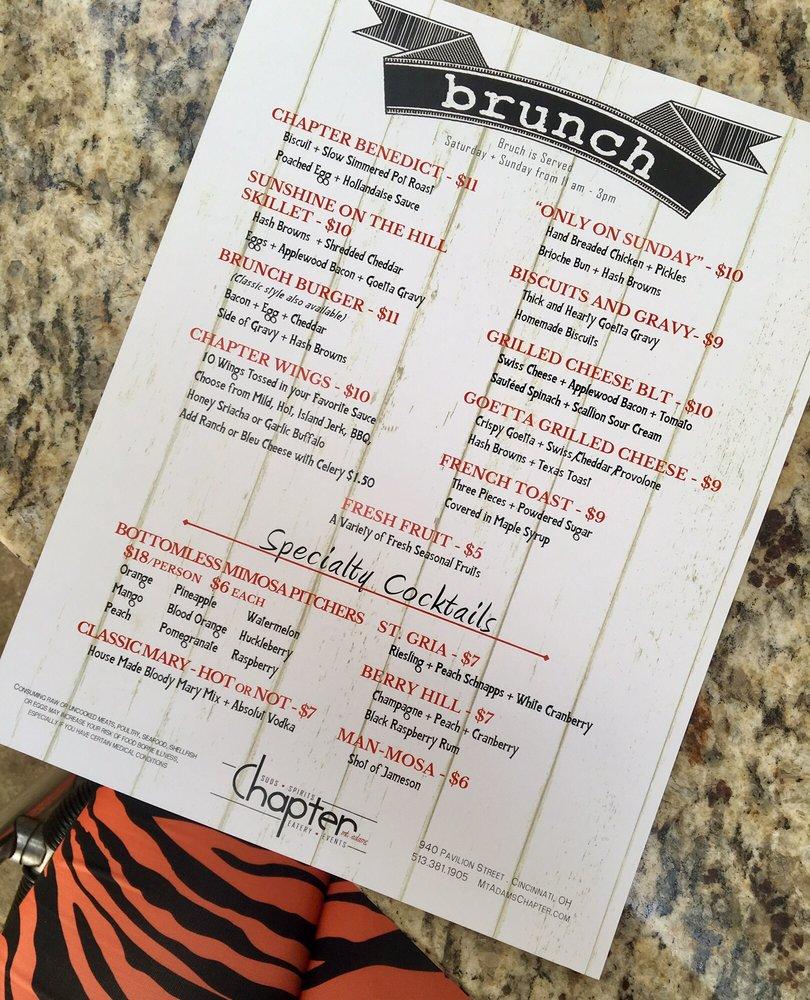 brunch
Bruch is Served
Saturday + Sunday from 11 am - 3pm
CHAPTER BENEDICT - $11
Biscuit + Slow Simmered Pot Roast
Poached Egg + Hollandaise Sauce
SUNSHINE ON THE HILL
SKILLET - $10
Hash Browns + Shredded Cheddar
Eggs + Applewood Bacon + Goetta Gravy
BRUNCH BURGER - $11
(Classic style also available)
Bacon + Egg + Cheddar
Side of Gravy + Hash Browns
CHAPTER WINGS - $10
10 Wings Tossed in your Favorite Sauce
Choose from Mild, Hot, Island Jerk, BBQ,
Honey Sriacha or Garlic Buffalo
Add Ranch or Bleu Cheese with Celery $1.50
"ONLY ON SUNDAY" - $10
Hand Breaded Chicken + Pickles
Brioche Bun + Hash Browns
BISCUITS AND GRAVY- $9
Thick and Hearty Goetta Gravy
Homemade Biscuits
GRILLED CHEESE BLT - $10
Swiss Cheese + Applewood Bacon + Tomato
Sautéed Spinach + Scallion Sour Cream
GOETTA GRILLED CHEESE - $9
Crispy Goetta + Swiss/Cheddar/Provolone
Hash Browns + Texas Toast
FRENCH TOAST - $9
Three Pieces + Powdered Sugar
Covered in Maple Syrup
FRESH FRUIT - $5
A Variety of Fresh Seasonal Fruits
Specialty Cocktails
BOTTOMLESS MIMOSA PITCHERS
$18/PERSON $6 EACH
Orange Pineapple Watermelon
Mango Blood Orange Huckleberry
Peach Pomegranate Raspberry
CLASSIC MARY - HOT OR NOT - $7
House Made Bloody Mary Mix + Absolut Vodka
ST. GRIA - $7
Riesling + Peach Schnapps + White Cranberry
BERRY HILL - $7
Champagne + Peach + Cranberry
Black Raspberry Rum
MAN-MOSA - $6
Shot of Jameson
CONSUMING RAW OR UNCOOKED MEATS, POULTRY, SEAFOOD, SHELLFISH
OR EGGS MAY INCREASE YOUR RISK OF FOOD BORNE ILLNESS,
ESPECIALLY IF YOU HAVE CERTAIN MEDICAL CONDITIONS
SUDS • SPIRITS
Chapter
mt. adams
EATERY • EVENTS
940 PAVILION STREET . CINCINNATI, OH
513.381.1905 MTADAMSCHAPTER.COM